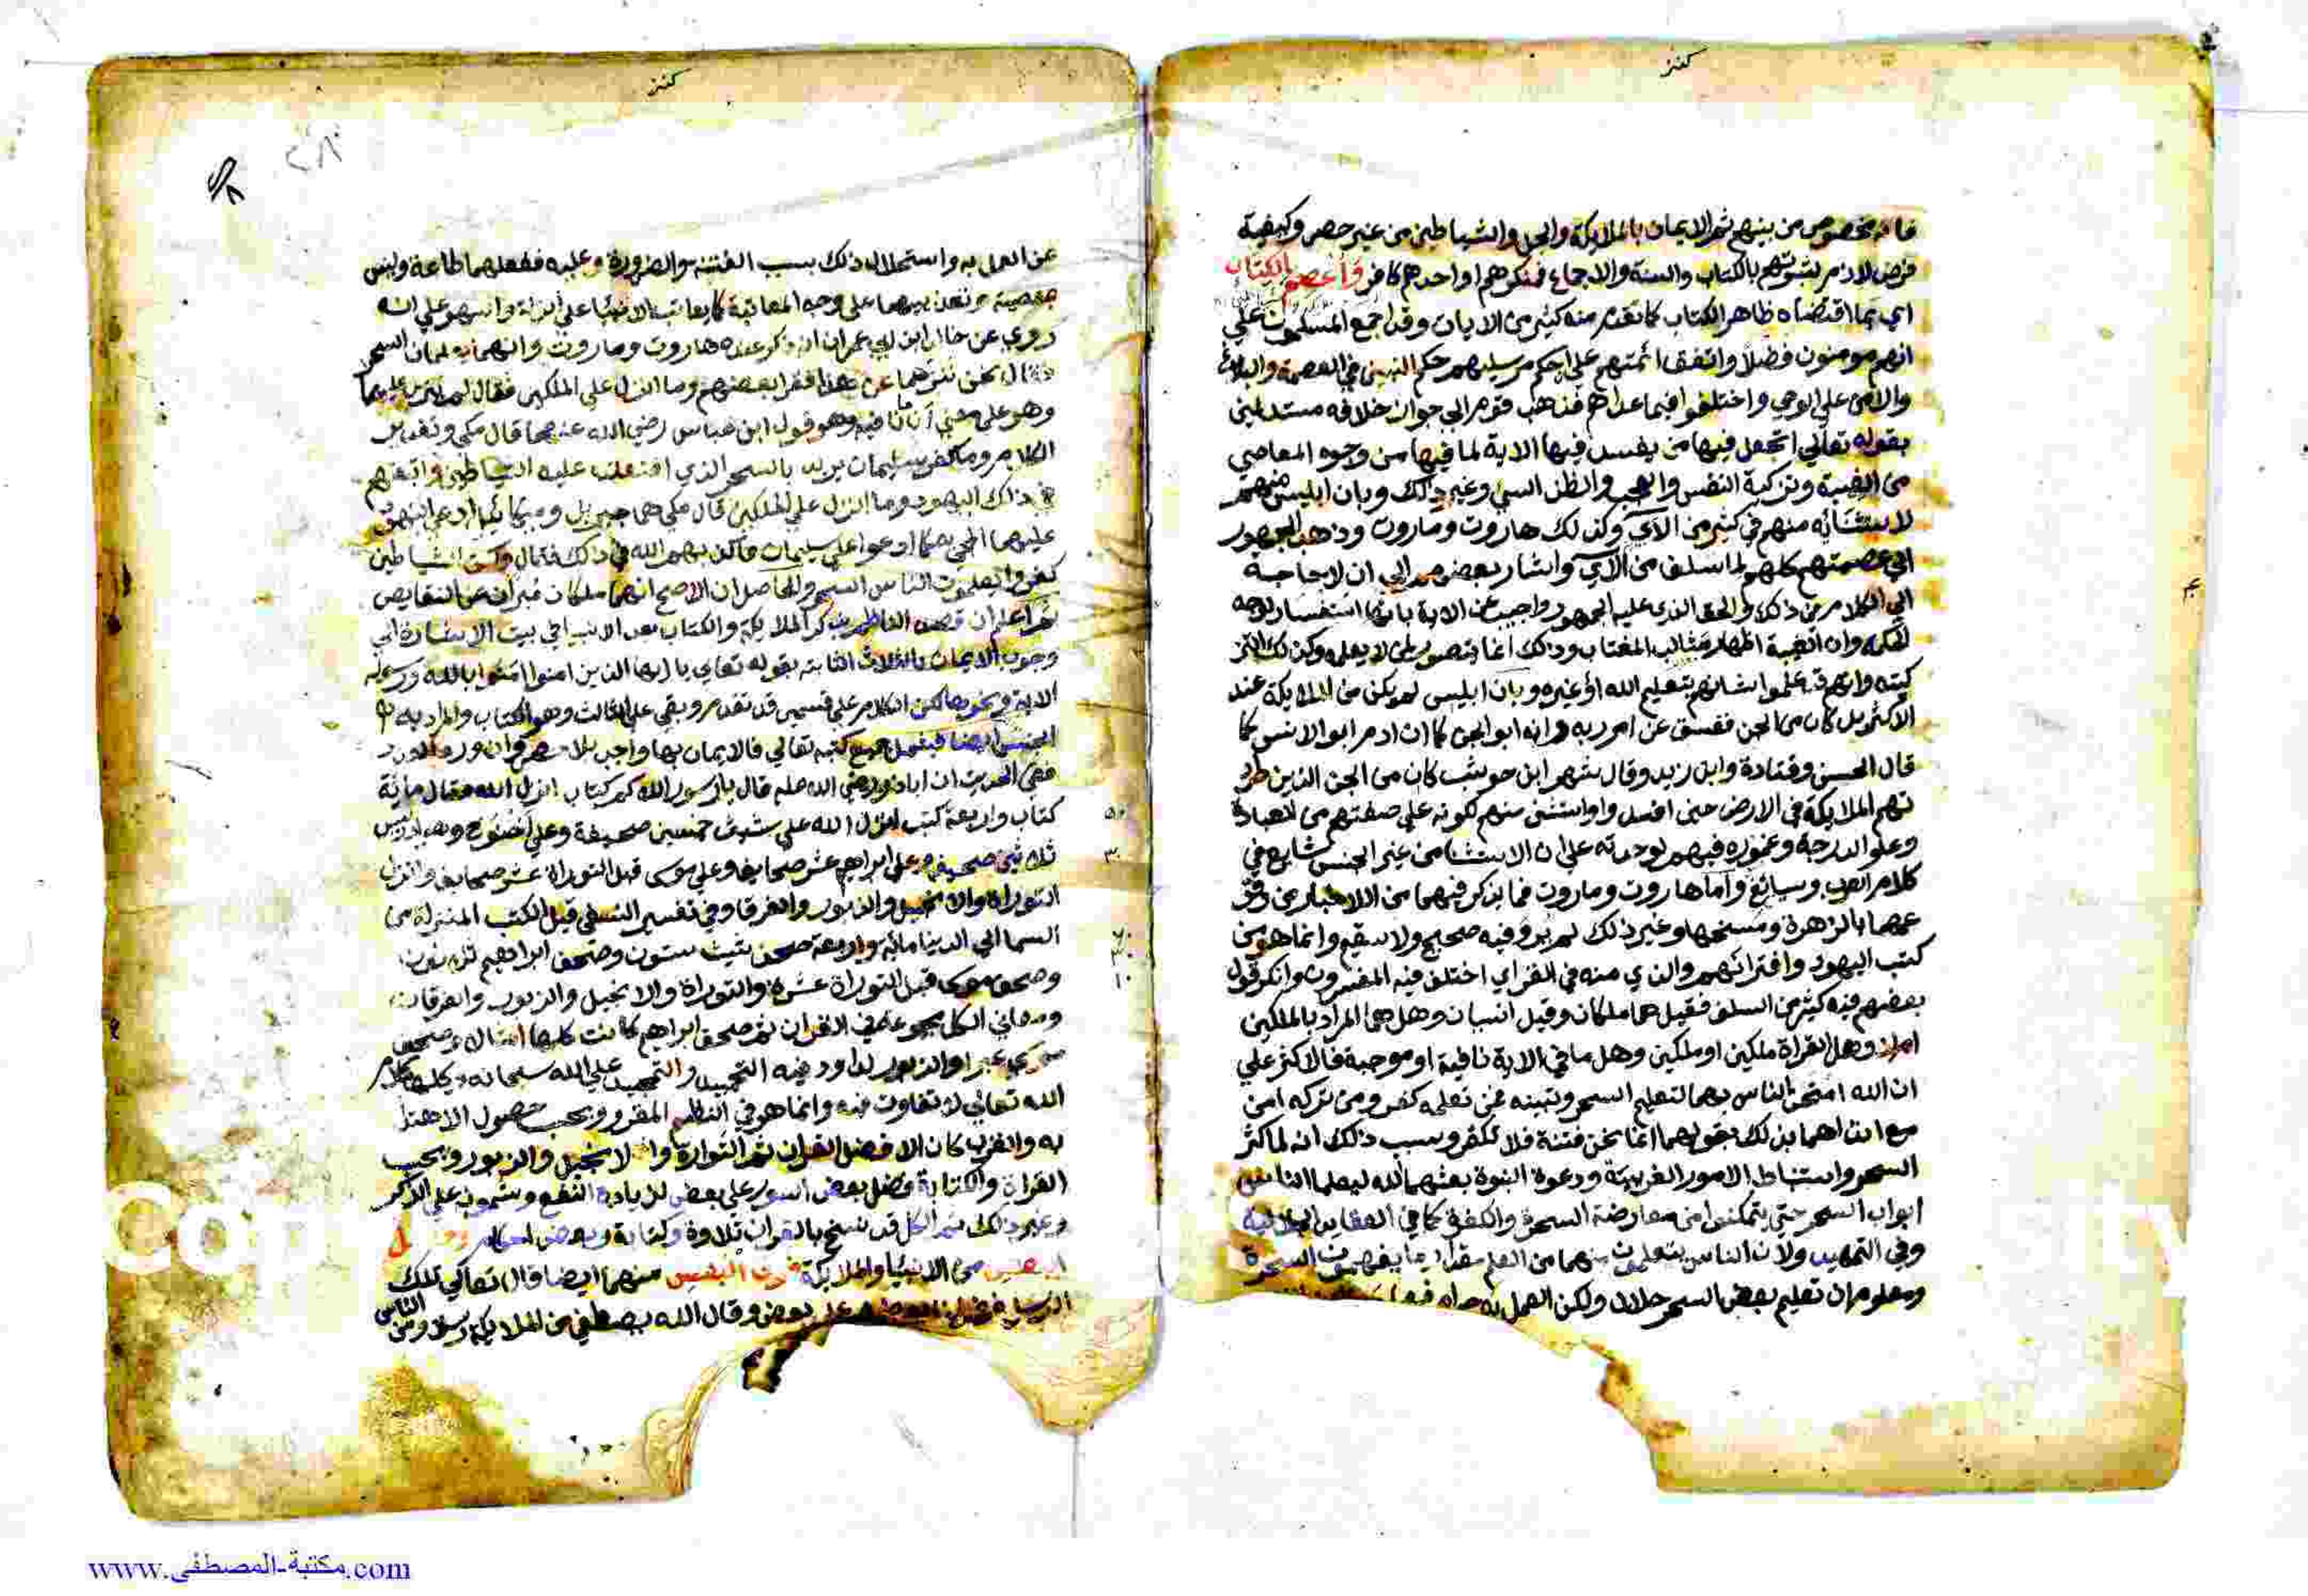 كنز
فانه مخصوص من بينهم ثم الايمان بالملايكة والجن والشياطين من غير حصر وكيفية
فرض لازم لثبوتهم بالكتاب والسنة والاجماع فمنكرهم او احدهم كافر واعصم بالكتاب
اي بما اقتضاه ظاهر الكتاب كما تقدم منه كثير من الايات وقد اجمع المسلمون علي
انهم مومنون فضلا واتفق ائمتهم علي ان حكم مرسليهم حكم النبيين في العصمة والبلاغ
والامن علي الوحي واختلفوا فيما عداهم فذهب قوم الي جواز خلافه مستدلين
بقوله تعالي اتجعل فيها من يفسد فيها الاية لما فيها من وجوه المعاصي
من الغيبة وتزكية النفس والعجب والظن السي وغير ذلك وبان ابليس منهم
لاستثنائه منهم في كثير من الآي وكذلك هاروت وماروت وذهب الجمهور
الي عصمتهم كلهم لما سلف من الآي واشار بعضهم الي ان لا حاجة
الي الكلام من ذلك والحق الذي عليه الجمهور واجيب عن الاية بانها استفسار لوجه
الحكمة وان الغيبة اظهار مثالب المغتاب وذلك انما يتصور لمن لا يعلمه وكذلك التز
كية وانهم قد علموا بشانهم بتعليم الله او غيره وبان ابليس لم يكن من الملايكة عند
الاكثر بل كان من الجن ففسق عن امر ربه وانه ابو الجن كما ان ادم ابو الانس كما
قال الحسن وقتادة وابن زيد وقال شهر ابن حوشب كان من الجن الذين طر
تهم الملايكة في الارض حين افسدوا واستثني منهم لكونه علي صفتهم من العبادة
وعلو الدرجة وغموره فيهم لوحدته علي ان الاستثنا من غير الجنس شايع في
كلام العرب وسايغ واما هاروت وماروت فما يذكر فيهما من الاخبار
بالزهرة ومسخها وغير ذلك لم يرو فيه صحيح ولا سقيم وانما هو من
كتب اليهود وافترائهم والذي منه في القران اختلف فيه المفسرون وانكر قول
بعضهم فيه كثير من السلف فقيل هما ملكان وقيل انسيان وهل هما المراد بالملكين
ام لا وهل القراة ملكين او ملكين وهل ما في الاية نافية او موجبة فالاكثر علي
ان الله امتحن الناس بهما لتعليم السحر وتبيينه فمن تعلمه كفر ومن تركه امن
مع ابتداهما بذلك بقولهما انما نحن فتنة فلا تكفر وسبب ذلك انه لما كثر
السحر واستنباط الامور الغريبة ودعوة النبوة بعثهما الله ليعلما الناس
ابواب السحر حتي يتمكنوا من معارضة السحرة والكفرة كما في العقايد
وفي التمهيد ولان الناس يتعلمون منهما من العلم مقدار ما يفهمون السحرة
ومعلوم ان تعليم بعض السحر حلال ولكن العمل به حرام
كنز
عن العمل به واستحلاله ذلك بسبب الفتنة والضرورة وعليه ففعلهما طاعة وليس
بمعصية وتعذيبهما علي وجه المعاتبة كما يعاتب الانبيا علي الزلة والسهو علي انه
روي عن خالد ابن ابي عمران انه ذكر عنده هاروت وماروت وانهما يعلمان السحر
فقال نحن ننزههما عن هذا فقرا بعضهم وما انزل علي الملكين فقال لم ينزل عليهما
وهو علي معني ان ما نافية وهو قول ابن عباس رضي الله عنهما قال مكي وتقدير
الكلام وما كفر سليمان يريد بالسحر الذي افتعلت عليه الشياطين واتبعتهم
في ذلك اليهود وما انزل علي الملكين قال مكي هما جبريل وميكائيل ادعي اليهود
عليهما المجي به كما ادعوا علي سليمان فاكذبهم الله في ذلك فقال ولكن الشياطين
كفروا يعلمون الناس السحر والحاصل ان الاصح انهما ملكان مبرآن من النقايص
ثم اعلم ان قصد الناظم بذكر الملايكة والكتاب بعد الانبيا في بيت الاشارة الي
وجوب الايمان بالثلاث الثابتة بقوله تعالي يا ايها الذين امنوا امنوا بالله ورسوله
الاية ونحوها لكن الكلام علي قسمين قد تقدم وبقي علي الثالث وهو الكتاب والمراد به
الجنس ايضا فيشمل جميع كتبه تعالي فالايمان بها واجب بلا حصر وان ورد العدد
ففي الحديث ان اباذر رضي الله عنه قال يا رسول الله كم كتاب انزل الله فقال مائة
كتاب واربعة كتب انزل الله علي شيث خمسين صحيفة وعلي اخنوخ وهو ادريس
ثلاثين صحيفة وعلي ابراهيم عشر صحايف وعلي موسي قبل التوراة عشر صحايف وانزل
التوراة والانجيل والزبور والفرقا وفي تفسير النسفي قيل الكتب المنزلة من
السما الي الدنيا مائة واربعة صحف شيث ستون وصحف ابراهيم ثلاثون
وصحف موسي قبل التوراة عشرة والتوراة والانجيل والزبور والفرقان
ومعاني الكل مجموعة في القران ثم صحف ابراهيم كانت كلها امثالا وصحف
موسي عبرا والزبور لداود فيه التحميد والتمجيد علي الله سبحانه وكلها كلام
الله تعالي لا تفاوت فيه وانما هو في النظم المقرر وبحسب حصول الاهتدا
به والقرب كان الافضل القران ثم التوراة والانجيل والزبور وبحسب
القراة والكتابة فضل بعض السور علي بعض لزيادة النفع وشموله علي الذكر
وغير ذلك ثم الكل قد نسخ بالقران تلاوة وكتابة وبعض احكام
من الانبيا والملايكة منهما ايضا قال تعالي تلك
الرسل فضلنا بعضهم علي بعض وقال الله يصطفي من الملايكة رسلا ومن الناس
٥٠
٣٠
٦٠
٣٠
١٠
www.مكتبة-المصطفى.com